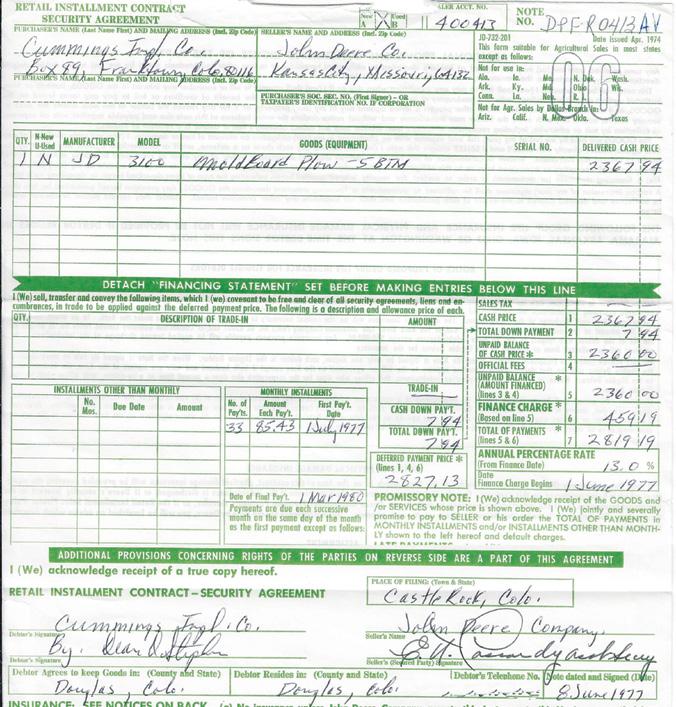 RETAIL INSTALLMENT CONTRACT
SECURITY AGREEMENT
New X Used
DEALER ACCT. NO.
400413
NOTE
NO. DPF-R0413AV
PURCHASER'S NAME (Last Name First) AND MAILING ADDRESS (Incl. Zip Code)
Cummings Impl. Co.
Box 99, Franktown, Colo. 80116
PURCHASER'S NAME (Last Name First) AND MAILING ADDRESS (Incl. Zip Code)
SELLER'S NAME AND ADDRESS (Incl. Zip Code)
John Deere Co.
Kansas City, Missouri, 64132
PURCHASER'S SOC. SEC. NO. (First Signer) - OR
TAXPAYER'S IDENTIFICATION NO. IF CORPORATION
JD-732-201 Date Issued Apr. 1974
This form suitable for Agricultural Sales in most states
except as follows:
Not for use in:
Ala. Ia. Me. N. Wash.
Ark. Ky. Md. Ohio Wis.
Conn. La. Nev. R. I.
Not for Agr. Sales by Dallas Branch in:
Ariz. Calif. N. Mex. Okla. Texas
06
QTY. N-New U-Used MANUFACTURER MODEL GOODS (EQUIPMENT) SERIAL NO. DELIVERED CASH PRICE
1 N JD 3100 MoldBoard Plow - 5 BTM 2367 94
DETACH "FINANCING STATEMENT" SET BEFORE MAKING ENTRIES BELOW THIS LINE
I (We) sell, transfer and convey the following items, which I (we) covenant to be free and clear of all security agreements, liens and en-
cumbrances, in trade to be applied against the deferred payment price. The following is a description and allowance price of each.
QTY. DESCRIPTION OF TRADE-IN AMOUNT
TRADE-IN
CASH DOWN PAY'T.
7 94
TOTAL DOWN PAY'T.
7 94
SALES TAX
CASH PRICE 1 2367 94
TOTAL DOWN PAYMENT 2 7 94
UNPAID BALANCE
OF CASH PRICE * 3 2360 00
OFFICIAL FEES 4
UNPAID BALANCE *
(AMOUNT FINANCED)
(lines 3 & 4) 5 2360 00
FINANCE CHARGE *
(Based on line 5) 6 459 19
TOTAL OF PAYMENTS *
(lines 5 & 6) 7 2819 19
ANNUAL PERCENTAGE RATE
(From Finance Date) 13.0 %
Date
Finance Charge Begins 1 June 1977
INSTALLMENTS OTHER THAN MONTHLY
No. Mos. Due Date Amount
MONTHLY INSTALLMENTS
No. of Pay'ts. Amount Each Pay't. First Pay't. Date
33 85.43 1 July 1977
Date of Final Pay't. 1 Mar 1980
Payments are due each successive
month on the same day of the month
as the first payment except as follows:
DEFERRED PAYMENT PRICE *
(lines 1, 4, 6)
2827.13
PROMISSORY NOTE: I (We) acknowledge receipt of the GOODS and
/or SERVICES whose price is shown above. I (We) jointly and severally
promise to pay to SELLER or his order the TOTAL OF PAYMENTS in
MONTHLY INSTALLMENTS and/or INSTALLMENTS OTHER THAN MONTH-
LY shown to the left hereof and default charges.
ADDITIONAL PROVISIONS CONCERNING RIGHTS OF THE PARTIES ON REVERSE SIDE ARE A PART OF THIS AGREEMENT
I (We) acknowledge receipt of a true copy hereof.
PLACE OF FILING: (Town & State)
Castle Rock, Colo.
RETAIL INSTALLMENT CONTRACT - SECURITY AGREEMENT
Cummings Impl. Co.
Debtor's Signature
By:
Debtor's Signature
John Deere Company
Seller's Name
Seller's (Secured Party) Signature
Debtor Agrees to keep Goods in: (County and State)
Douglas, Colo.
Debtor Resides in: (County and State)
Douglas, Colo.
Debtor's Telephone No.
Note dated and Signed (Date)
8 June 1977
INSURANCE: SEE NOTICES ON BACK.